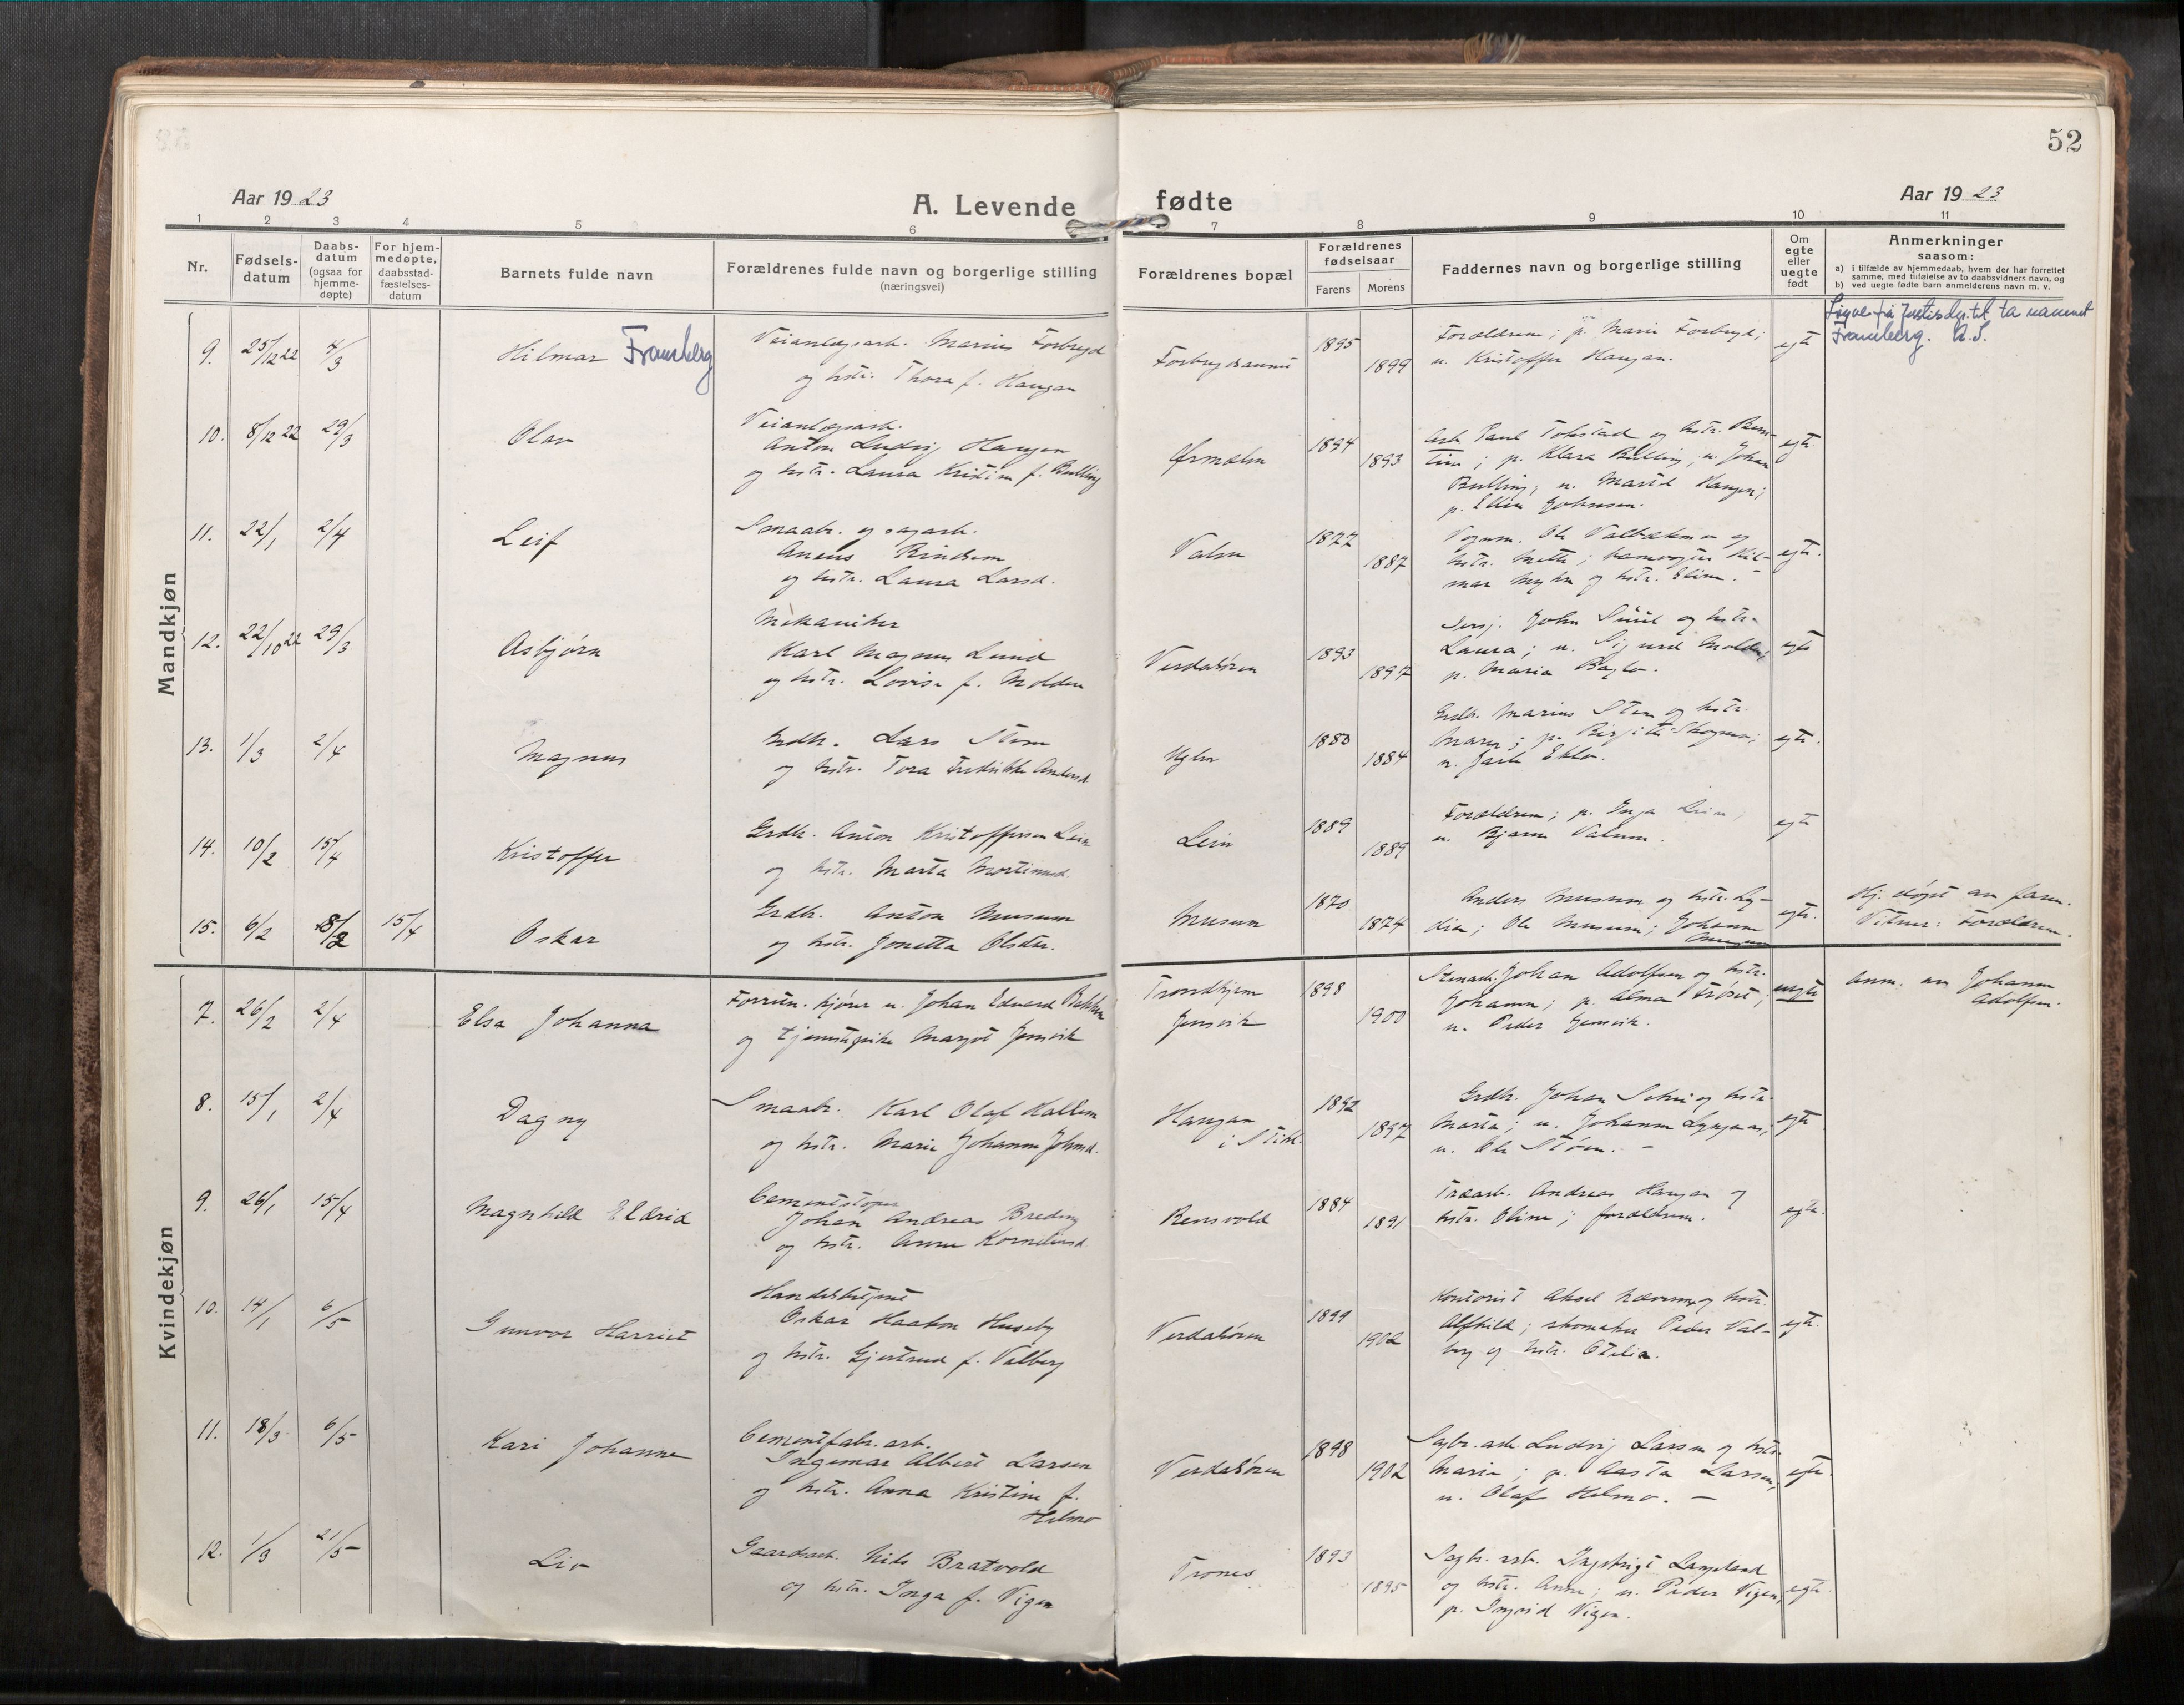 52
Aar 1923
A. Levende fødte
Aar 1923
1 2 3 4 5 6 7 8 9 10 11
Nr.
Fødsels-
datum
Daabs-
datum
(ogsaa for
hjemme-
døpte)
For hjem-
medøpte,
daabsstad-
fæstelses-
datum
Barnets fulde navn
Forældrenes fulde navn og borgerlige stilling
(næringsvei)
Forældrenes bopæl
Forældrenes
fødselsaar
Farens Morens
Faddernes navn og borgerlige stilling
Om
egte
eller
uegte
født
Anmerkninger
saasom:
a) i tilfælde av hjemmedaab, hvem der har forrettet
samme, med tilføielse av to daabsvidners navn, og
b) ved uegte fødte barn anmelderens navn m. v.
Mandkjøn
9. 25/12 22 4/3 Hilmar Framberg
Veianlægsarb. Marius Forbregd
og hstr. Thora f. Haugan
1895
1899
Forældrene; p. Marie Forbregd;
u. Kristoffer Haugan.
egte
til ta namnet
Framberg.
10. 8/12 22 29/3 Olav
Veianlægsarb.
Anton Ludvig Haugen
og hstr. Laura Kristine f. Bulling
Ørmelen
1894
1893
Arb. Paul Tokstad og hstr. Bern-
tine; p. Klara Bulling; u. Johan
Bulling; u. Marid Haugen;
p. Ellen Johnsen.
egte
11. 22/1 2/4 Leif
Smaabr. og sagarb.
Aneus Rindsem
og hstr. Laura Larsd.
Valen
1877
1887
Vognm. Ole Valbekmo og
hstr. Mette; banevogter Hil-
mar Myhr og hstr. Eline.
egte.
12. 22/10 22 29/3 Asbjørn
Mekaniker
Karl Magnus Lund
og hstr. Lovise f. Molden
Verdalsøren
1893
1897
Sersj. John Suul og hstr.
Laura; u. Sigurd Molden;
p. Maria Baglo.
egte
13. 1/3 2/4 Magnus
Grdb. Lars Stene
og hstr. Tora Fredrikke Andersd.
1883
1884
Grdb. Marius Stene og hstr.
Maren; p. Birgitte Skogmo;
u. Jarle Eklo.
egte.
14. 10/2 15/4 Kristoffer
Grdb. Anton Kristoffersen Lein
og hstr. Marta Mortinusd.
Lein
1889
1889
Forældrene; p. Inga Lein;
u. Bjarne Valum.
egte
15. 6/2 18/2 15/4 Oskar
Grdb. Anton Musum
og hstr. Jonetta Olsdtr.
Musum
1870
1874
Anders Musum og hstr. Ly-
dia; Ole Musum; Johanne
Musum
egte.
Hj. døpt av faren.
Vitner: Forældrene.
Kvindekjøn
7. 26/2 2/4 Elsa Johanna
Forretn. kjører u. Johan Edvard Bakken
og tjenestepike Margot Jensvik
Trondhjem
Jensvik
1898
1900
Stenarb. Johan Adolfsen og hstr.
Johanne; p. Alma Frøset;
u. Peder Jensvik.
uegte
Anm. av Johanne
Adolfsen.
8. 15/1 2/4 Dagny
Smaabr. Karl Olaf Hallem
og hstr. Marie Johanne Johnsd.
Haugan
i Stikl.
1892
1897
Grdb. Johan Sehm og hstr.
Marta; u. Johannes Lyngaas;
u. Ole Støren.
egte
9. 26/1 15/4 Magnhild Eldrid
Cementstøper
Johan Andreas Breding
og hstr. Anna Korneliusd.
Rensvold
1884
1891
Træarb. Andreas Haugan og
hstr. Oline; forældrene.
egte.
10. 14/1 6/5 Gunvor Harriet
Handelsbetjent
Oskar Haakon Huseby
og hstr. Gjertrud f. Valberg
Verdalsøren
1899
1902
Kontorist Aksel Kværnmo og hstr.
Alfhild; skomaker Peder Val-
berg og hstr. Otelia.
egte.
11. 18/3 6/5 Kari Johanne
Cementfabr. arb.
Ingemar Albert Larsen
og hstr. Anna Kristine f.
Helmo
Verdalsøren
1898
1902
Sagbr. arb. Ludvig Larsen og hstr.
Marie; p. Aasta Larsen,
u. Olaf Helmo.
egte.
12. 1/3 21/5 Liv
Gaardsarb. Nils Bratvold
og hstr. Inga f. Vigen
Trones
1893
1895
Sagbr. arb. Ingebrigt Langeland
og hstr. Anna; u. Peder Vigen,
p. Ingrid Vigen.
egte.